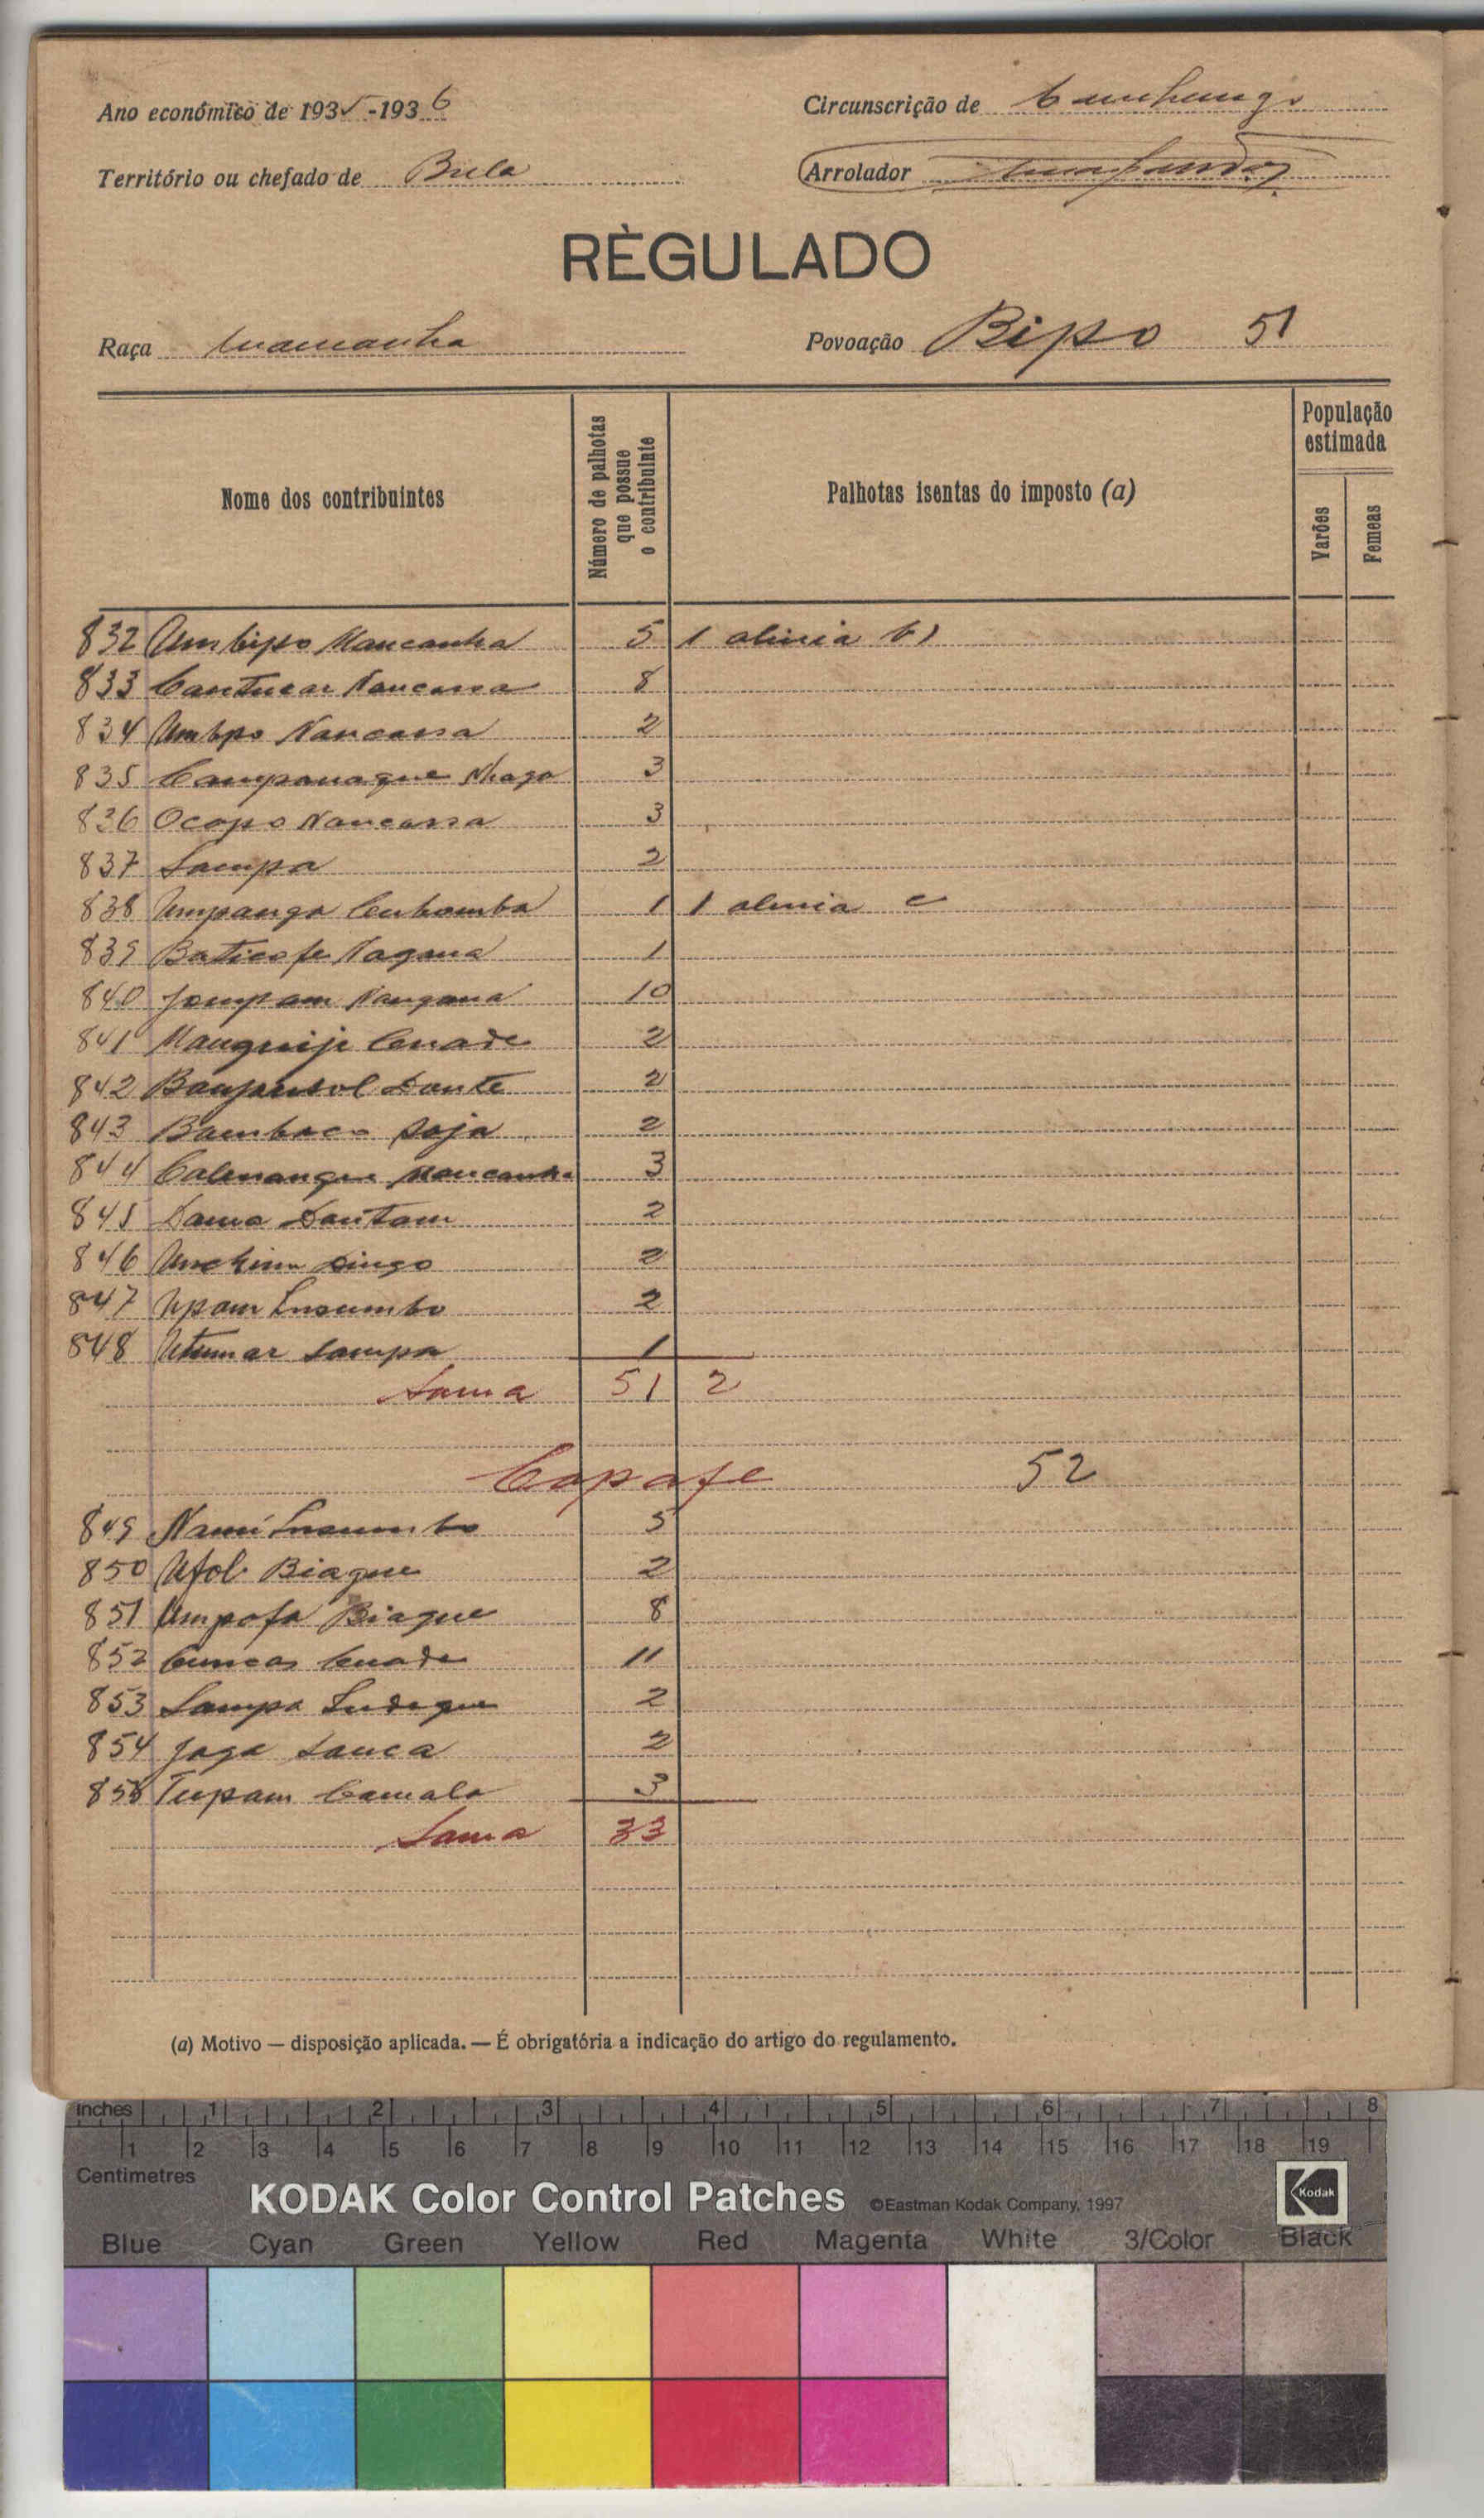 Ano económico de 1935-1936
Circunscrição de
Território ou chefado de Bula
Arrolador
RÈGULADO
Raça Mamcanha
Povoação Bipo 51
Nome dos contribuintes
Número de palhotas que possue o contribuinte
Palhotas isentas do imposto (a)
População estimada
Varões
Femeas
832 Umbipo Mancanha 5 1 alinia b)
833 Cantucar Nancassa 8
834 Umbpo Nancassa 2
835 Campanaque Nhaga 3
836 Ocopo Nancassa 3
837 Sampa 2
838 Umpanga 1 1 alinia c
839 Baticofe Nagana 1
840 Jompam Nangana 10
841 Manguije Cuade 2
842 Dante 2
843 Bamboco Soja 2
844 Calenanque Mancanha 3
845 Dama Dautam 2
846 Unchim Dingo 2
847 Upam Insumbo 2
848 Utumar Sampa 1
Soma 51 2
Copafe 52
849 Nami Insumbo 5
850 Ufol Biague 2
851 Umpofa Biague 8
852 Cumcas Cuade 11
853 Sampa Indeque 2
854 Jaga Sanca 2
855 Tupam Camala 3
Soma 33
(a) Motivo — disposição aplicada. — É obrigatória a indicação do artigo do regulamento.
inches 1 2 3 4 5 6 7 8
1 2 3 4 5 6 7 8 9 10 11 12 13 14 15 16 17 18 19
Centimetres
KODAK Color Control Patches ©Eastman Kodak Company, 1997 Kodak
Blue Cyan Green Yellow Red Magenta White 3/Color Black